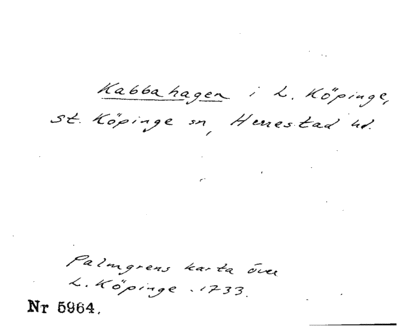 Kabbahagen i L. Köpinge,
st. Köpinge sn, Herrestad hd.
Palmgrens karta över
L. Köpinge . 1733.
Nr 5964.